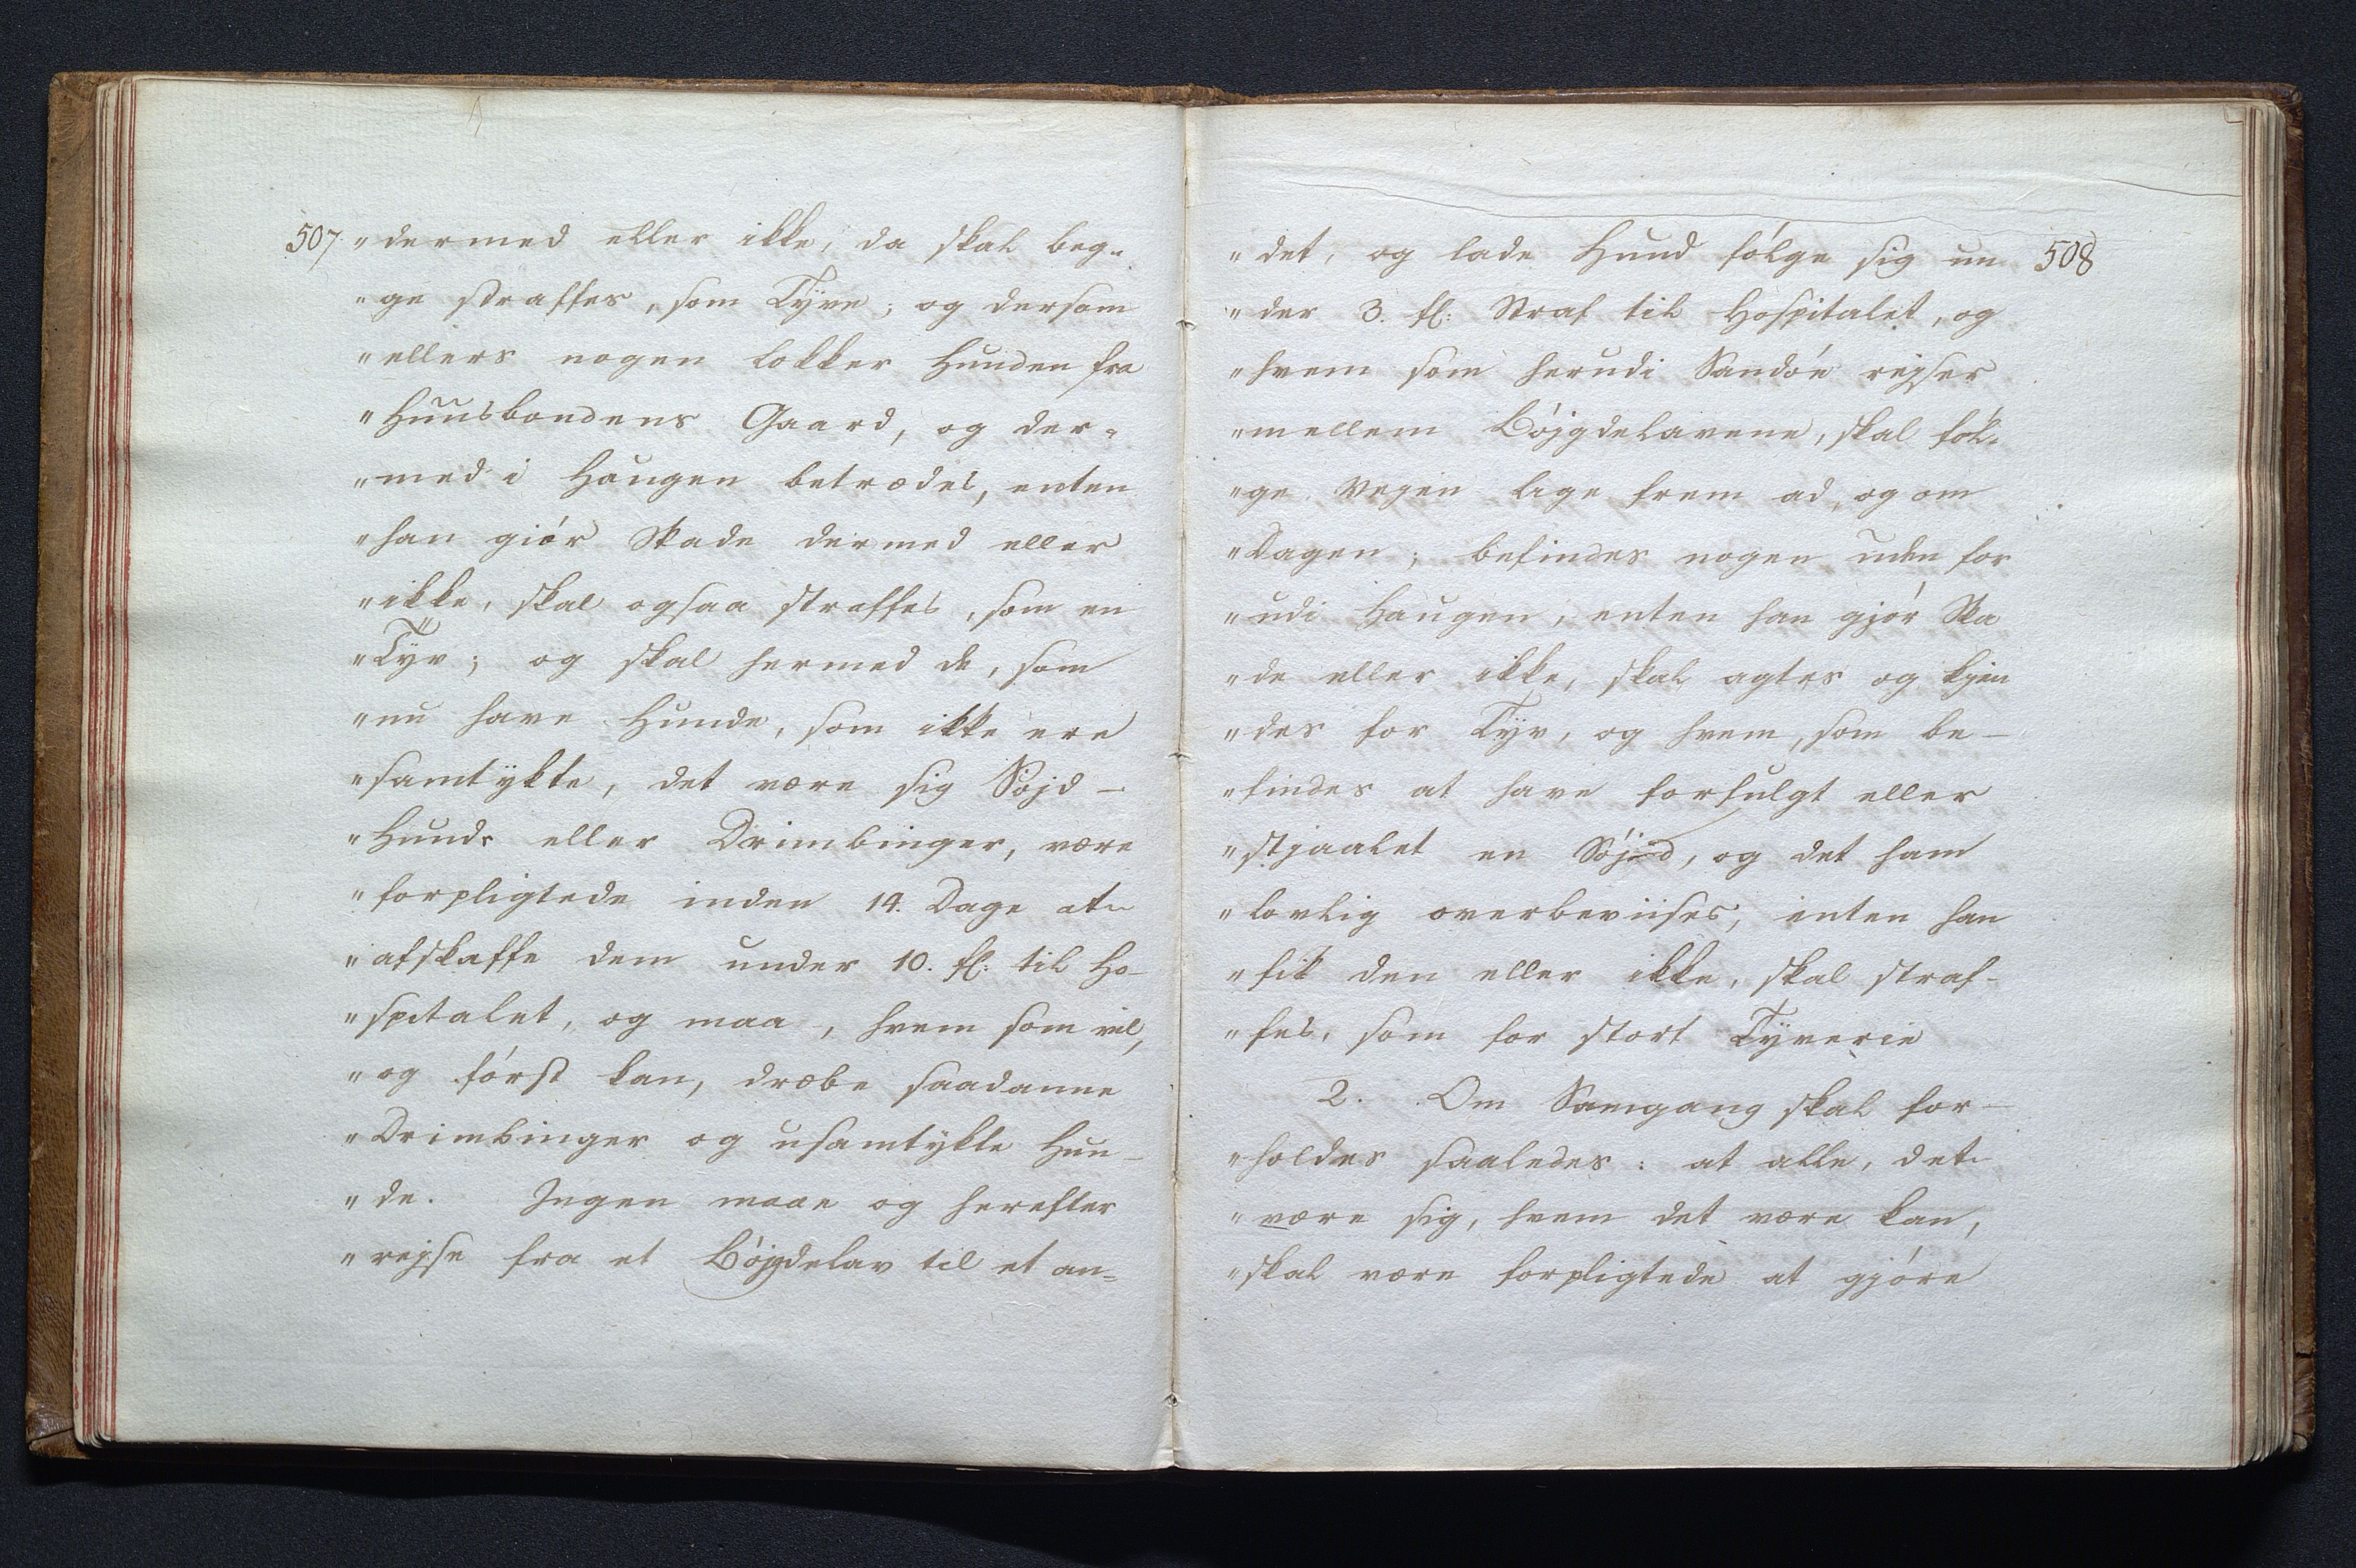 507. „dermed eller ikke, da skal beg-
„ge straffes, som Tÿve; og dersom
„ellers nogen lokker Hunden fra
„Huusbondens Gaard, og der-
„med i Haugen betrædes, enten
„han giór Skade dermed eller
„ikke, skal ogsaa straffes, som en
„Tÿv; og skal hermed de, som
„nu have Hunde, som ikke ere
„samtÿkte, det være sig Sójd-
„Hunde eller Drimbinger, være
„forpligtede inden 14. Dage at
„afskaffe dem under 10. fl: til Ho-
„spitalet, og maa, hvem som vil,
„og fórst kan, dræbe saadanne
„Drimbinger og usamtÿkte Hun-
„de. Ingen maae og herefter
„rejse fra et Bójgdelav til et an-
„det, og lade Hund fólge sig un 508
„der 3. fl: Straf til Hospitalet, og
„hvem som herudi Sandóe rejser
„mellem Bójgdelavene, skal fól-
„ge Vejen lige frem ad, og om
„Dagen; befindes nogen uden for
„udi Haugen, enten han gjór Ska
„de eller ikke, skal agtes og kjen
„des for Tÿv, og hvem, som be-
„findes at have forfulgt eller
„stjaalet en Sójd, og det ham
„lovlig overbeviises, enten han
„fik den eller ikke, skal straf-
„fes, som for stort Tÿverie
2. Om Samgang skal for-
„holdes saaledes: at alle, det
„være sig, hvem det være kan,
„skal være forpligtede at gjóre